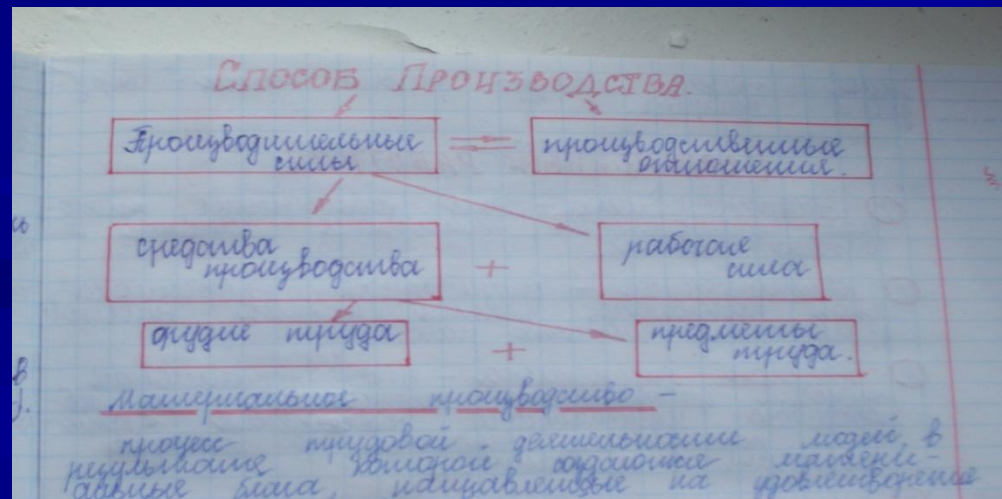 Способ Производства.
Производительные
силы
производственные
отношения.
средства
производства
+
рабочая
сила
орудие труда
+
предметы
труда.
Материальное производство –
процесс трудовой деятельности людей, в
результате которой создаются матери-
альные блага, направленные на удовлетворение